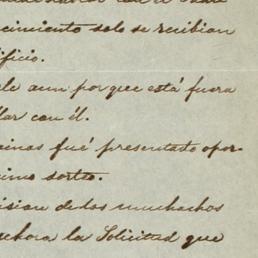 cimiento solo se recibian
ificio.
le aun por que está fuera
lar con él.
inas fué presentado opor-
ximo sorteo.
ision de los muchachos
ahora la Solicitud que